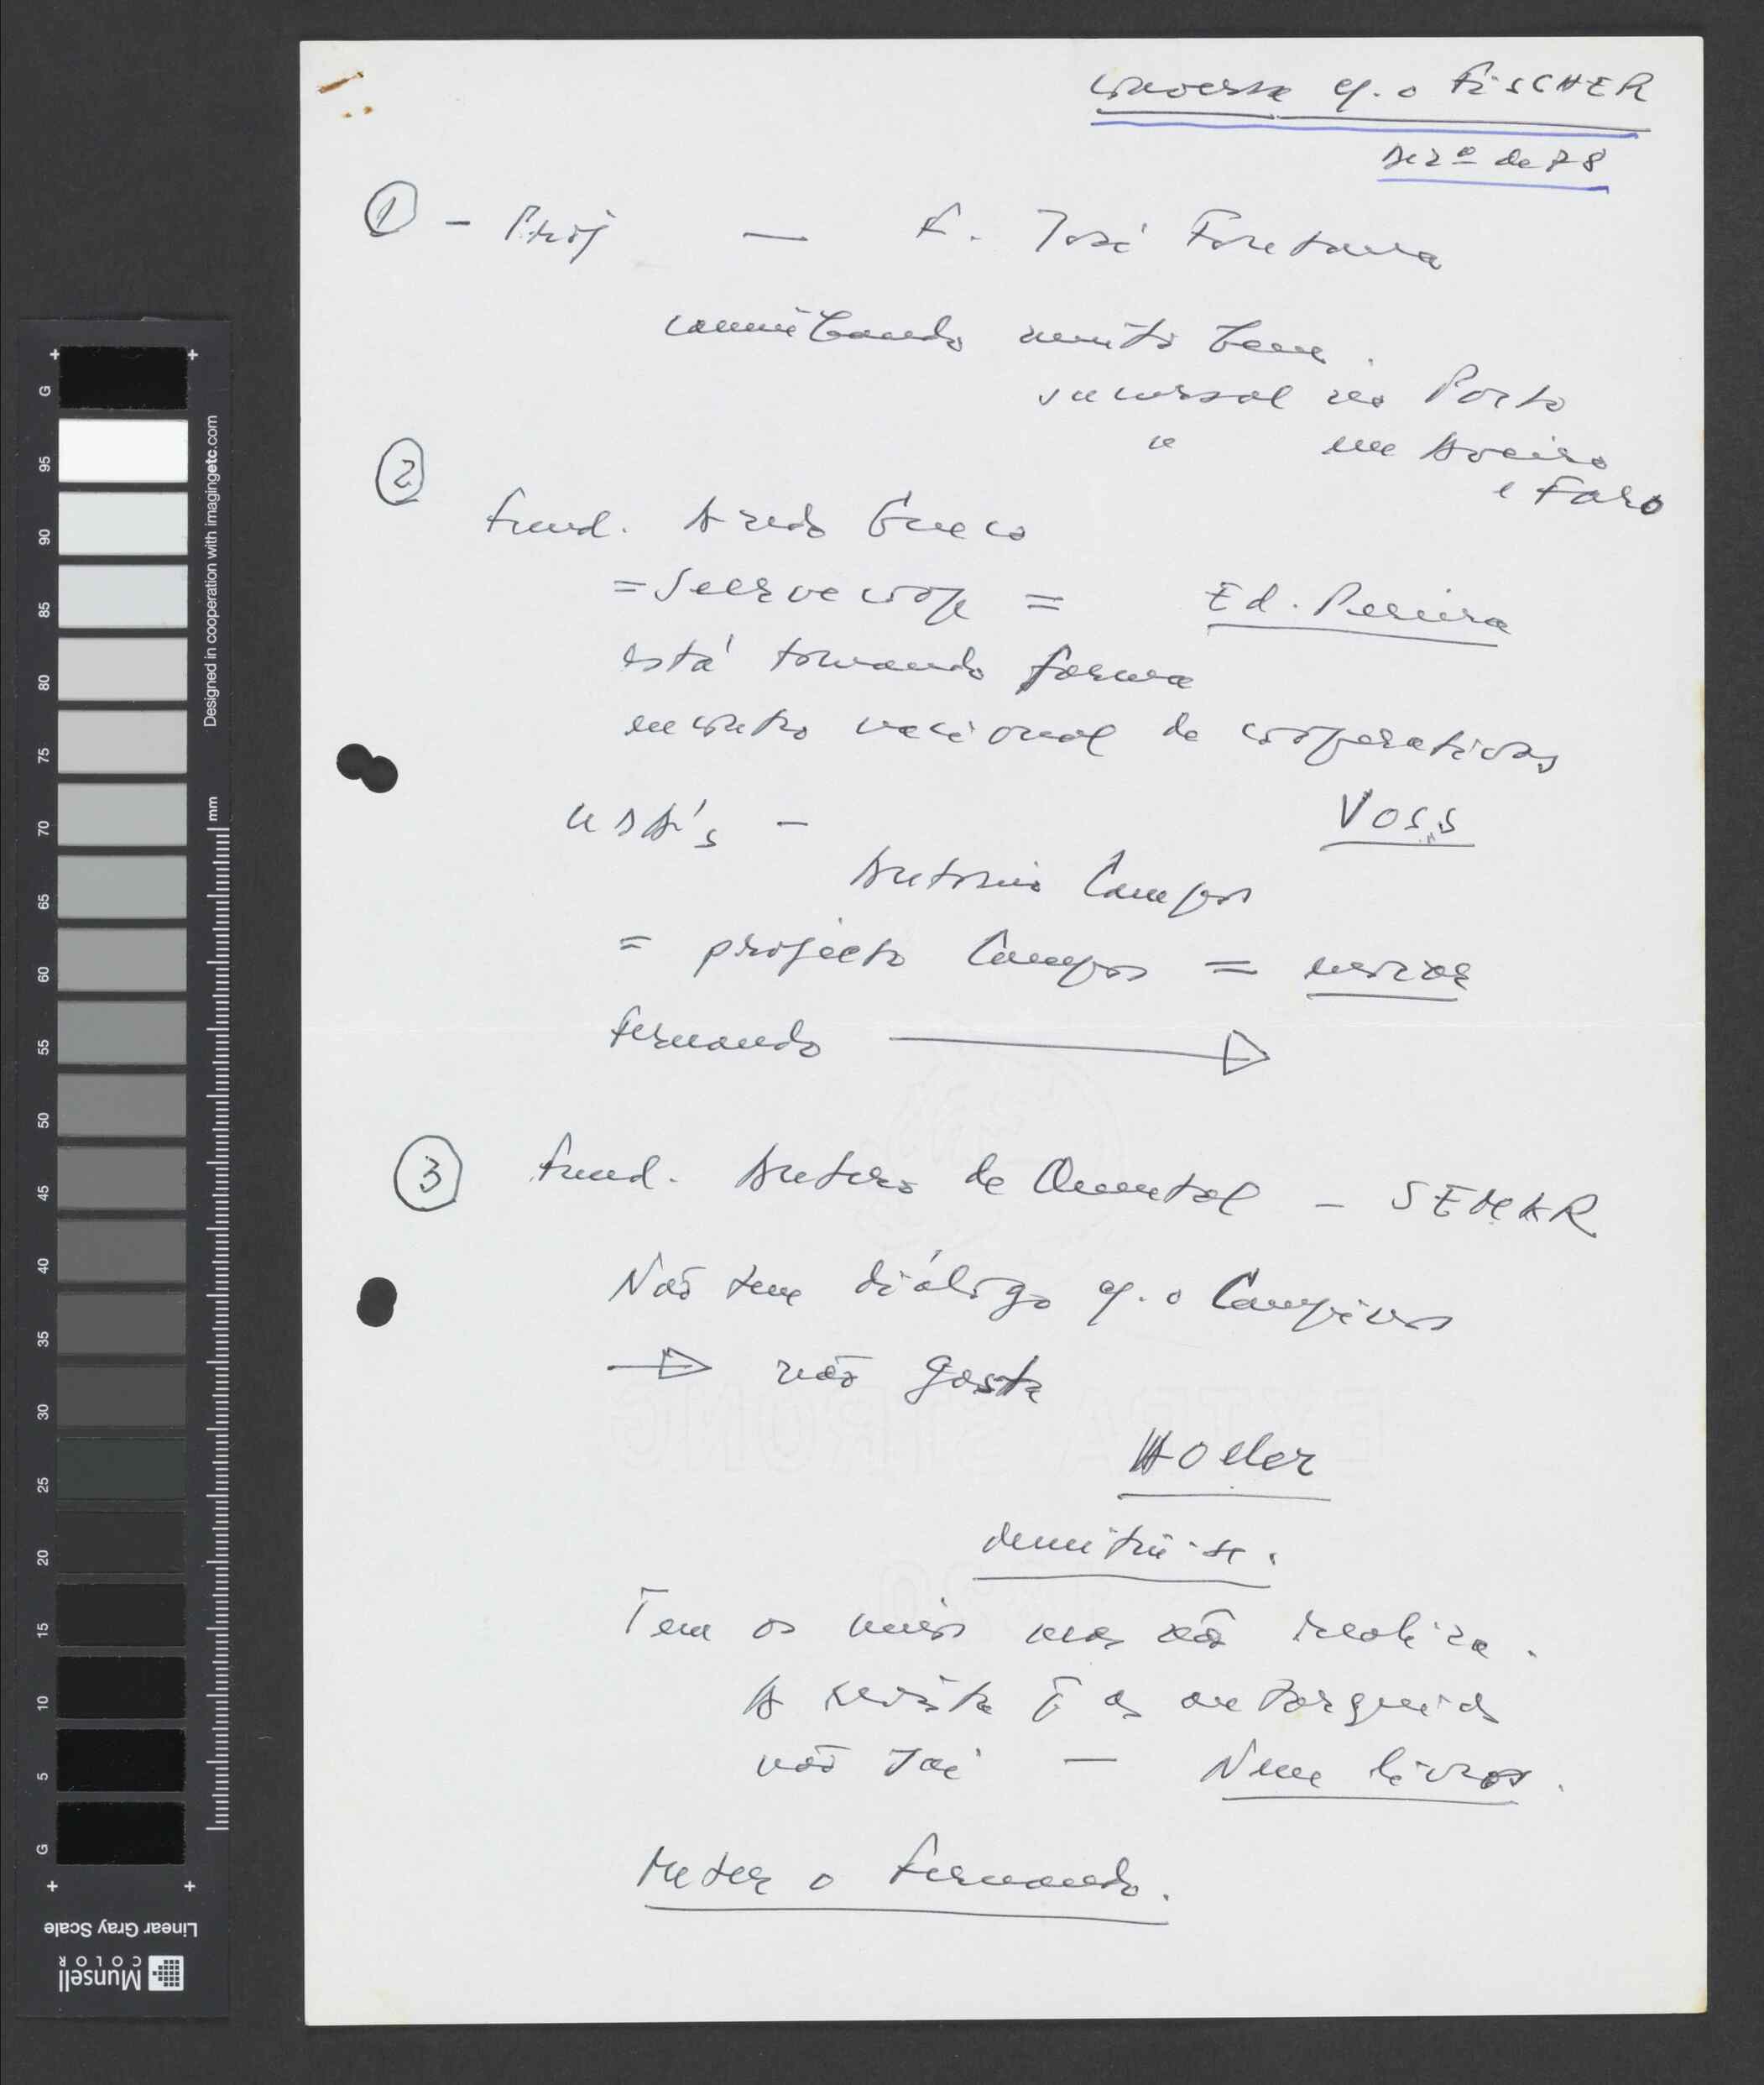 conversa c/. o FiSCHER
Dezº de 78
1 - Proj — F. José Fontana
caminhando muito bem.
sucursal no Porto
" em Aveiro
e Faro
2
Fund. Azedo Gneco
= = Ed. Pereira
está tomando forma
encontro nacional de cooperativas
UDA's - Voss
Antonio Campos
= projecto Campos =
Fernando
3 Fund. Antero de Quental - SEMKR
Não tem diálogo c/. o Campinos
não gosta
demitiu-se.
Tem os meios mas não realiza.
A revista p̄ as autarquias
não sai — Nem livros.
Meter o Fernando.
G
95
90
85
80
75
70
65
60
55
50
45
40
35
30
25
20
15
10
5
G
Designed in cooperation with imagingetc.com
mm
Linear Gray Scale
Munsell
COLOR